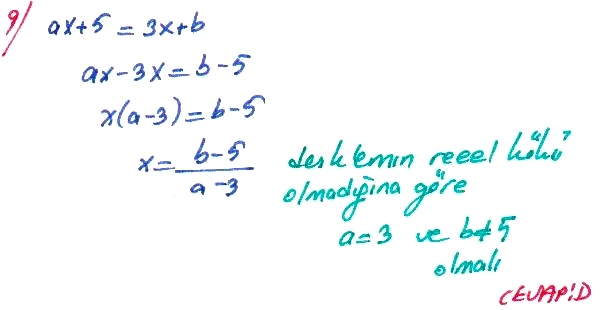 9) ax+5=3x+b
ax-3x=b-5
x(a-3)=b-5
x=\frac{b-5}{a-3}
denklemin reel kökü
olmadığına göre
a=3 ve b≠5
olmalı
CEVAP:D